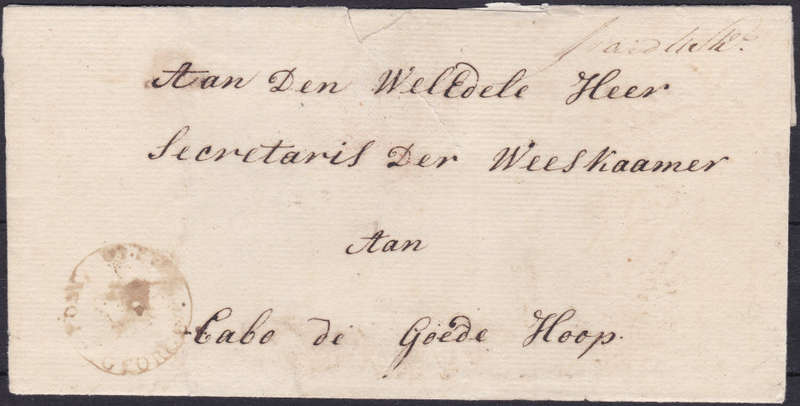 Aan Den WelEdele Heer
Secretaris Der Weeskaamer
Aan
Cabo de Goede Hoop.
POST OFFICE
GEORGE